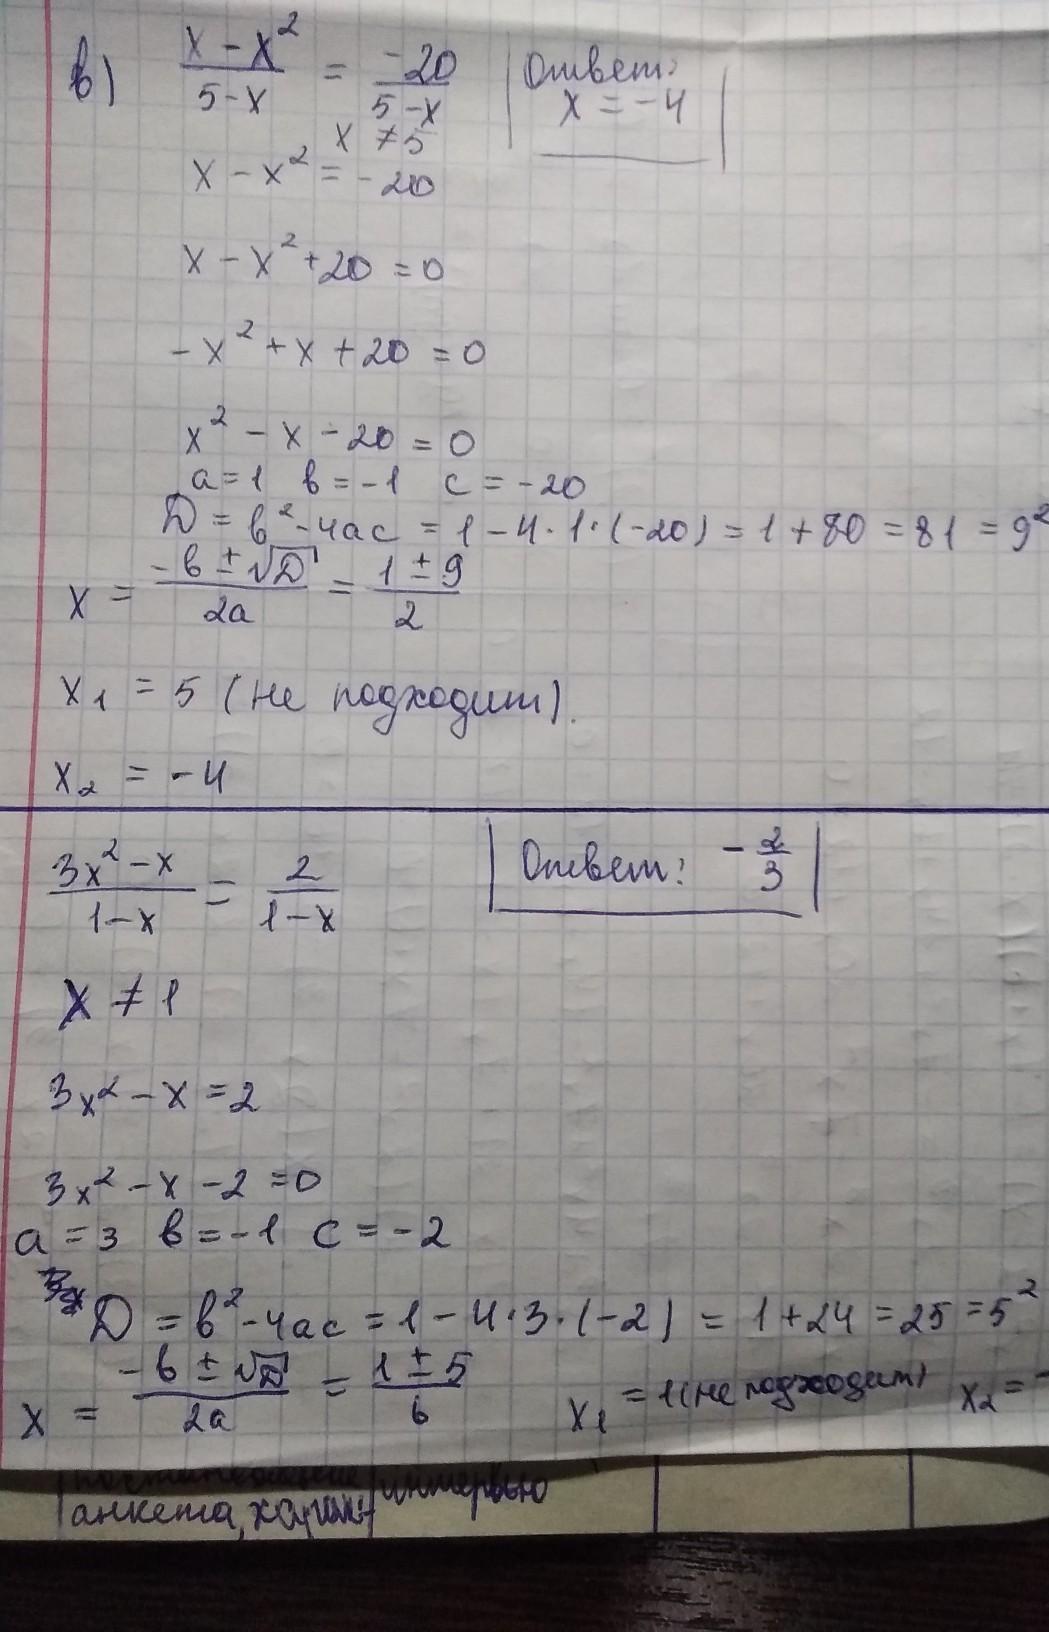 в) (x - x²)/(5 - x) = (-20)/(5 - x)
Ответ:
x = -4
x ≠ 5
x - x² = -20
x - x² + 20 = 0
-x² + x + 20 = 0
x² - x - 20 = 0
a = 1 в = -1 c = -20
D = в² - 4ac = 1 - 4·1·(-20) = 1 + 80 = 81 = 9²
x = (-в ± √D)/(2a) = (1 ± 9)/2
x₁ = 5 (не подходит).
x₂ = -4
(3x² - x)/(1 - x) = 2/(1 - x)
Ответ: -2/3
x ≠ 1
3x² - x = 2
3x² - x - 2 = 0
a = 3 в = -1 c = -2
D = в² - 4ac = 1 - 4·3·(-2) = 1 + 24 = 25 = 5²
x = (-в ± √D)/(2a) = (1 ± 5)/6 x₁ = 1 (не подходит) x₂ = -
интервью
анкета,